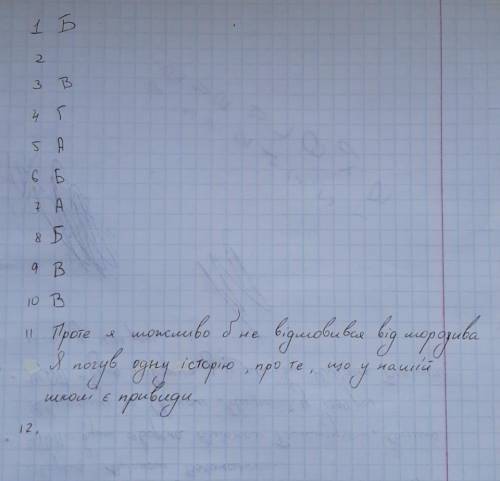 1 Б
2
3 В
4 Г
5 А
6 Б
7 А
8 Б
9 В
10 В
11 Проте я можливо б не відмовився від морозива
Я почув одну історію, про те, що у нашій
школі є привиди.
12.